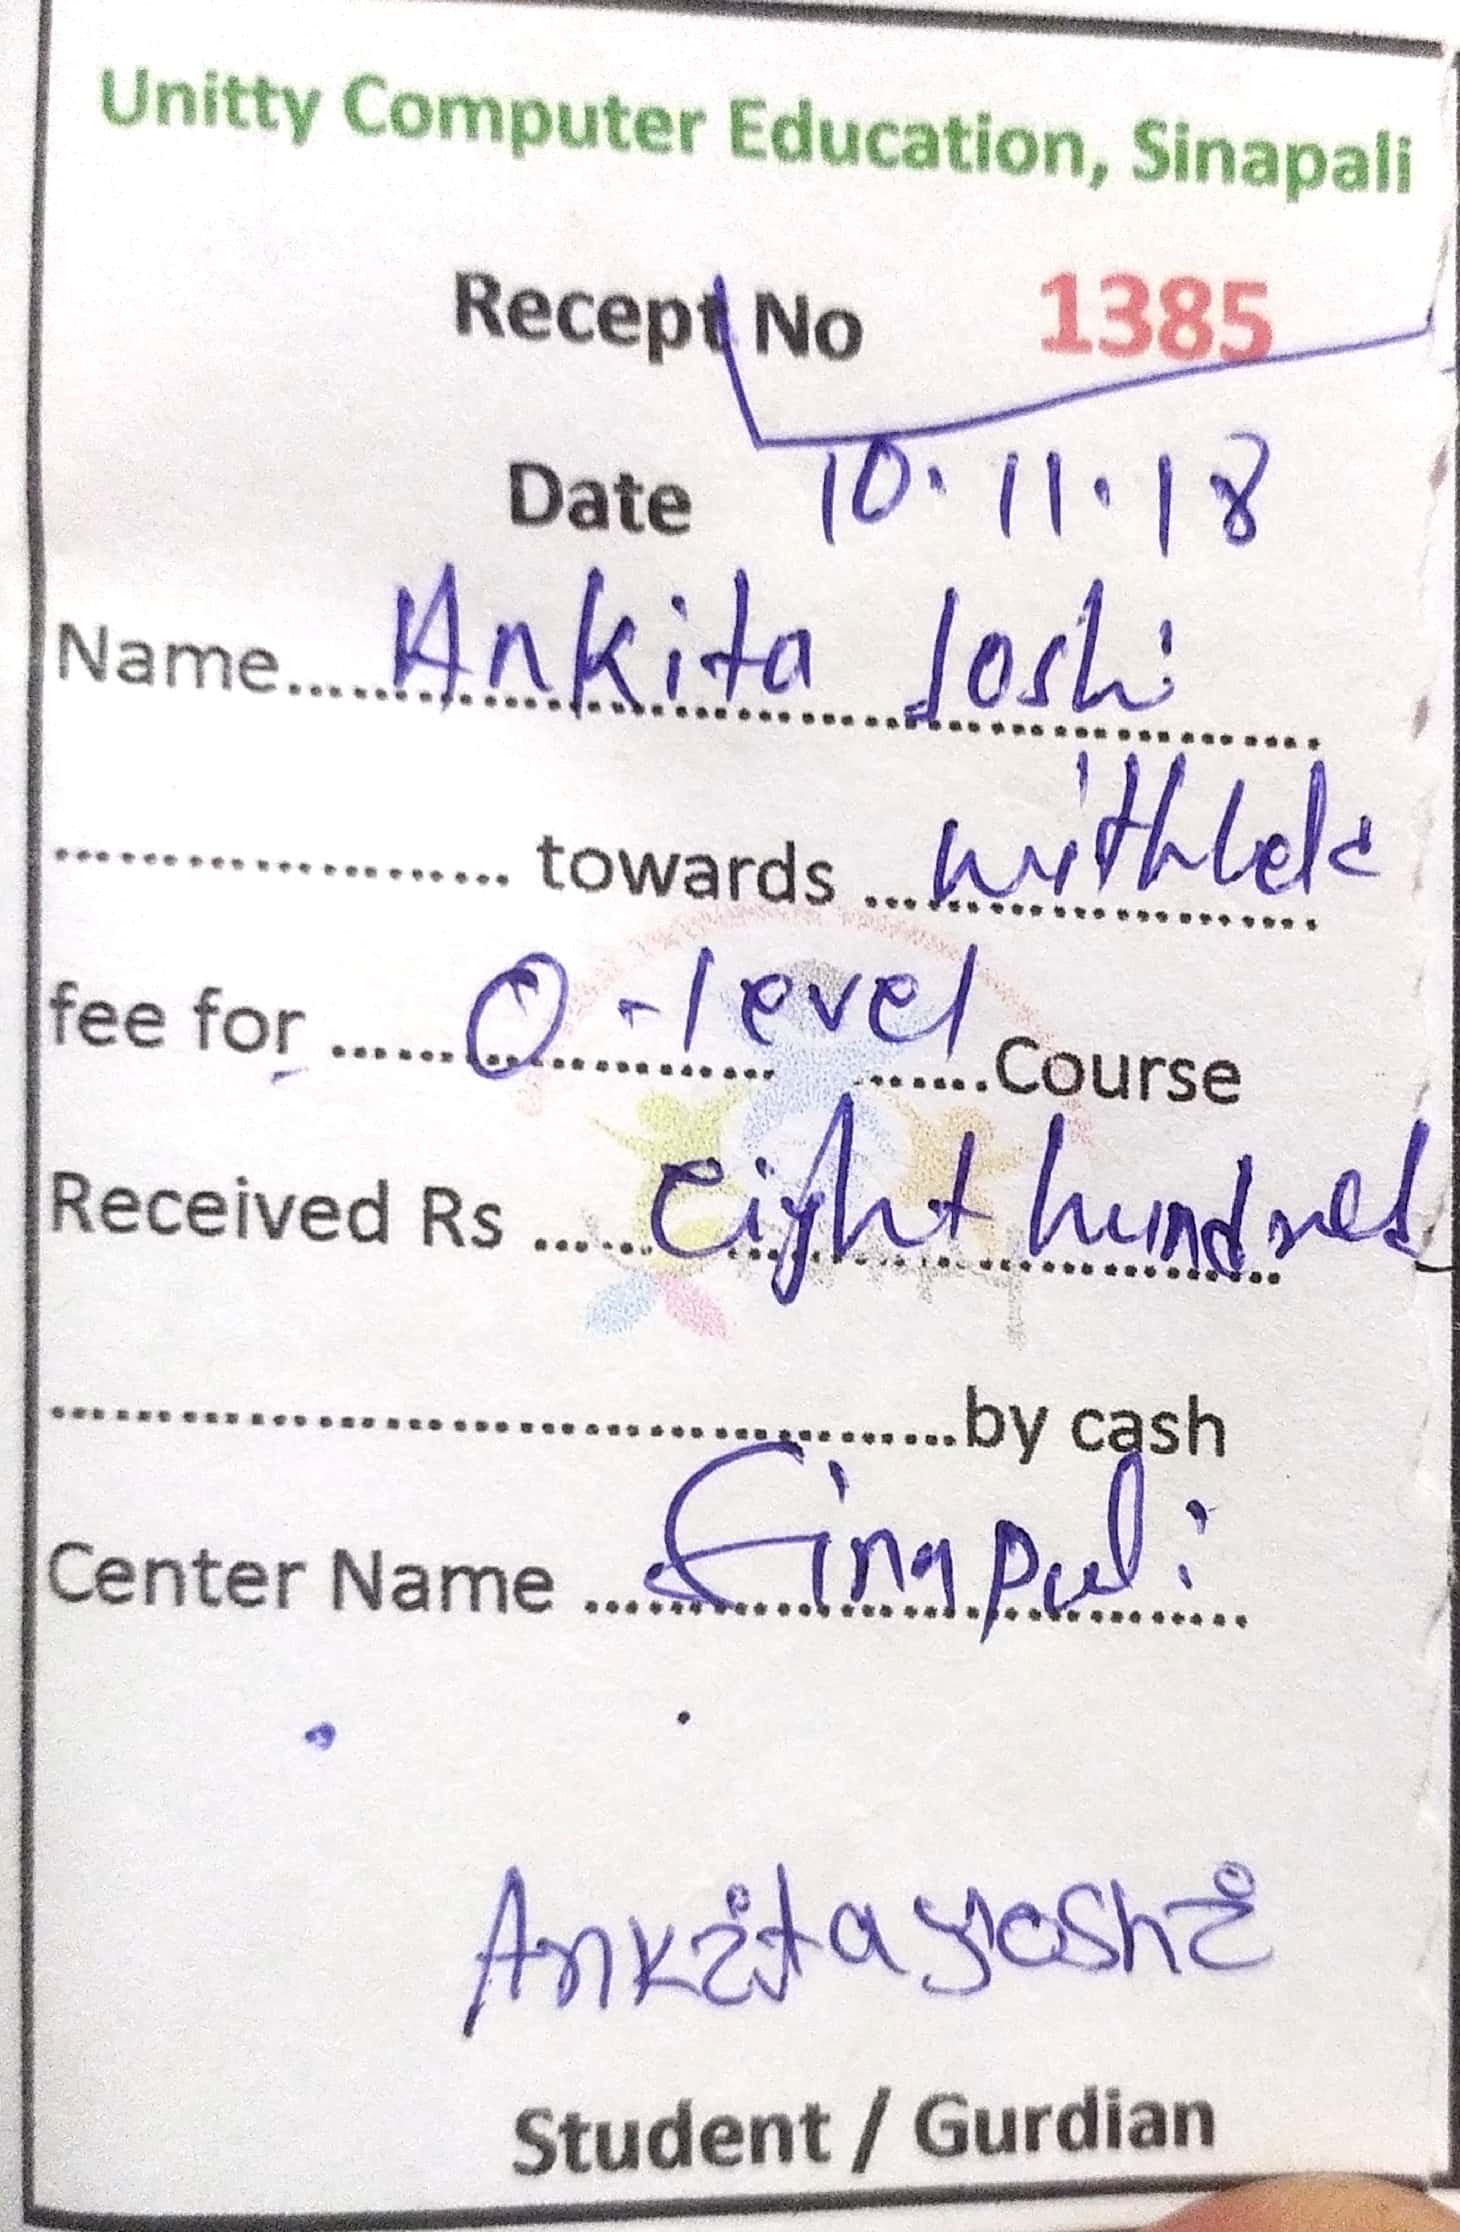 Unitty Computer Education, Sinapali
Recept No 1385
Date 10.11.18
Name.....Ankita Joshi
.................. towards ...
fee for ......O-level.......Course
Received Rs ......eight hundred
...................................by cash
Center Name ....Sinapali
Ankita yoshi
Student / Gurdian